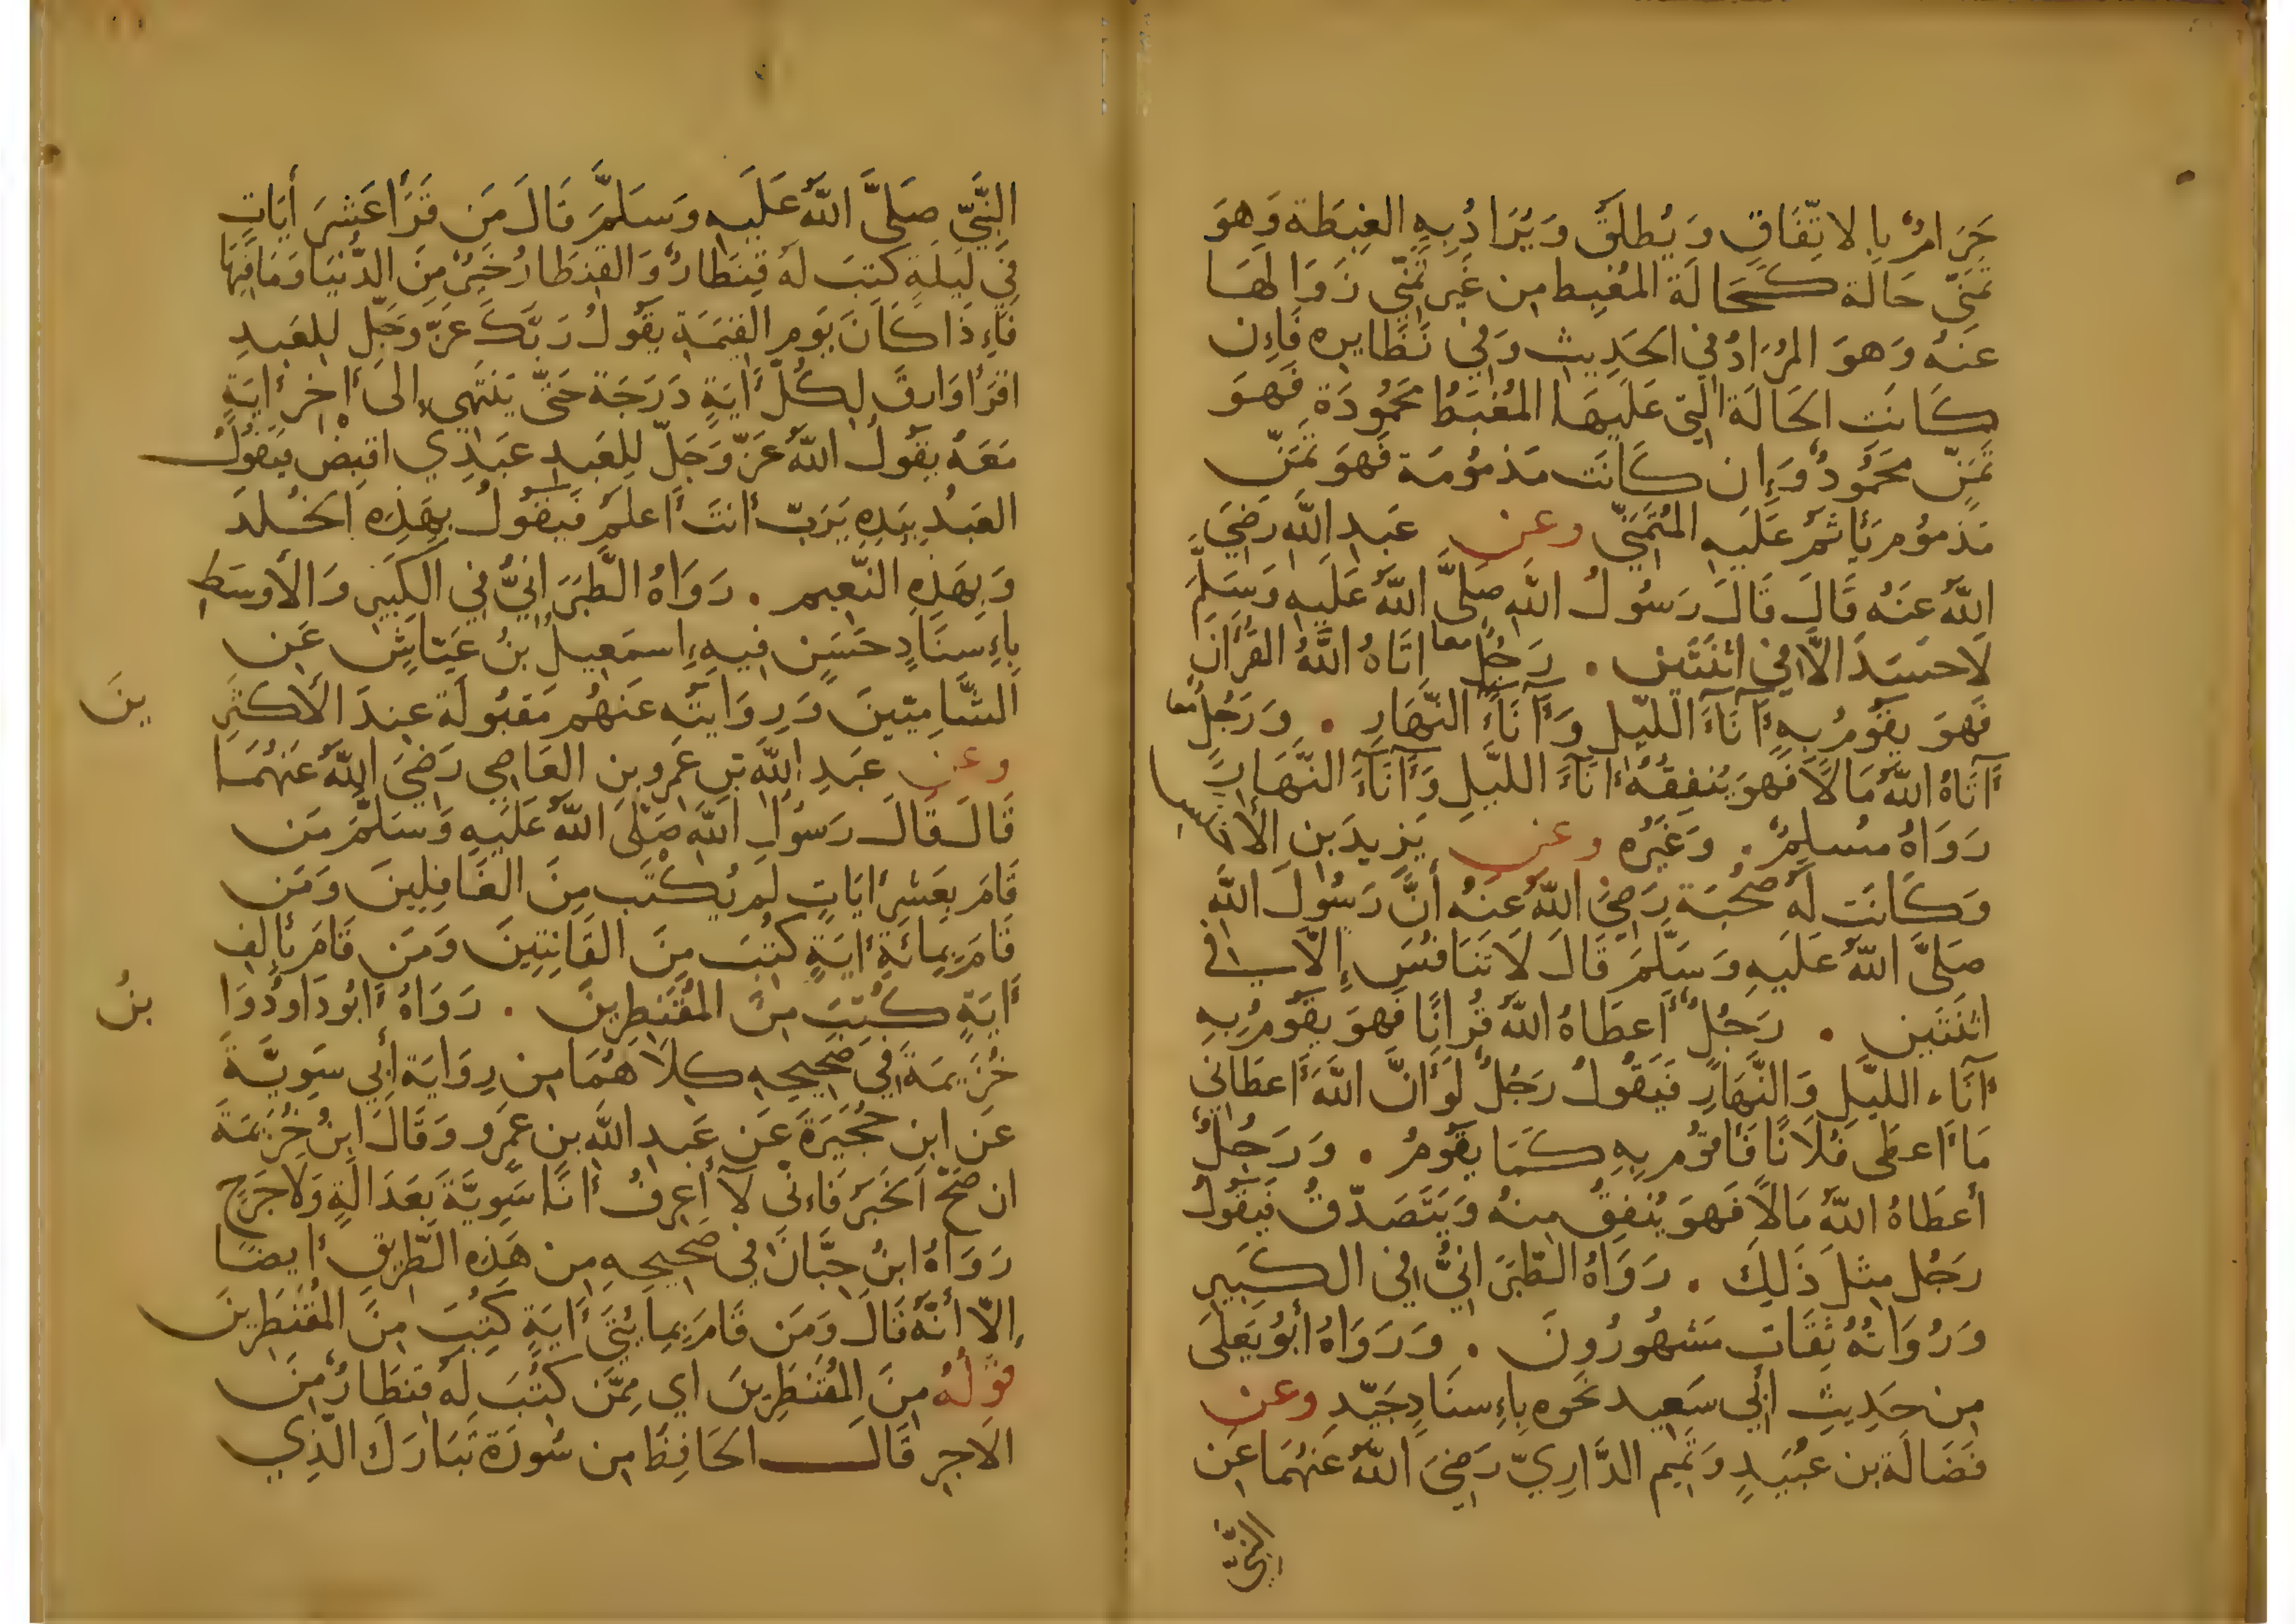 حَرَامٌ بِالاتِّفَاقِ وَيُطلَقُ وَيُرَادُ بِهِ الغِبطَة وَهوَ
تَمَنّي حَالَة كَحَالَة المُغبِط مِن غَيرِ تَمَنّي زَوَالهَا
عَنهُ وَهوَ المُرَادُ في الحَدِيثِ وَفي نَظَايرِه فَإِن
كَانَتِ الحَالَة الّتي عَلَيهَا المُغبَطُ مَحمُودَة فَهوَ
تَمَنّ مَحمُودٌ وَإِن كَانَت مَذمُومَة فَهوَ تمَنّ
مَذمُوم يَأثَمُ عَلَيهِ المُتَمَنّي وعن عَبدِ اللَّه رَضِيَ
اللَّهُ عَنهُ قَالَ قَالَ رَسُولُ اللَّهِ صَلَّى اللَّهُ عَلَيهِ وَسَلَّمَ
لَا حَسَدَ الَّا في اثنَتَين . رَجُلٌ معا اتَاهُ اللَّهُ القُرآنَ
فَهوَ يَقُومُ بِهِ آنَاءَ اللَّيلِ وَآنَاءَ النَّهَارِ . وَرَجُلٌ معا
آتَاهُ اللَّهُ مَالًا فَهوَ يُنفِقُهُ آنَاءَ اللَّيلِ وَآنَاءَ النَّهَارِ
رَوَاهُ مُسلِمٌ . وَغَيرُه وعن يَزِيدَ بنِ الأخنس
وَكَانَت لَهُ صُحبَة رَضِيَ اللَّهُ عَنهُ أَنَّ رَسُولَ اللَّهِ
صَلَّى اللَّهُ عَلَيهِ وَسَلَّمَ قَالَ لَا تَنَافُسَ إِلَّا في
اثنَتَين . رَجُلٌ أَعطَاهُ اللَّهُ قُرانًا فَهوَ يَقُومُ بِهِ
آنَاء اللَّيلِ وَالنَّهَارِ فَيَقُولُ رَجُلٌ لَو أَنَّ اللَّهَ أَعطَانِي
مَا أَعطَى فُلَانًا فَأَقُوم بِهِ كَمَا يَقُومُ . وَرَجُلٌ
أَعطَاهُ اللَّهُ مَالًا فَهوَ يُنفِقُ مِنهُ وَيَتَصَدّقُ فَيَقُولُ
رَجُل مِثلَ ذَلِكَ . رَوَاهُ الطّبَرَانِيُّ في الكَبِيرِ
وَرُوَاتُهُ ثِقَات مَشهُورُونَ . وَرَوَاهُ أَبُو يَعلَى
مِن حَدِيثِ أَبِي سَعِيد نَحوه بِإِسنَادٍ جَيّدٍ وعن
فَضَالَة بن عُبَيدٍ وَتَمِيم الدَّارِيّ رَضِيَ اللَّهُ عَنهُمَا عَن
النَّبِيّ
النَّبِيّ صَلَّى اللَّهُ عَلَيهِ وَسَلَّمَ قَالَ مَن قَرَأَ عَشرَ أَيَاتٍ
في لَيلَةٍ كُتبَ لَهُ قِنطَارٌ وَالقِنطَارُ خَيرٌ مِنَ الدُّنيَا وَمَا فِيهَا
فَإِذَا كَانَ يَوم القِيَمَةِ يَقُولُ رَبُّكَ عَزّ وَجَلّ لِلعَبدِ
اقرَأ وَارقَ لِكُلّ أَيَةٍ دَرَجَة حَتَّى يَنتَهي إِلى أَخِر أَيَةٍ
مَعَهُ يَقُولُ اللَّهُ عَزّ وَجَلّ لِلعَبدِ عَبدِي اقبِض فَيَقُولُ
العَبدُ بِيَدِهِ يَرَبّ أَنتَ أَعلَمُ فَيَقُولُ بِهَذِهِ الخُلدَ
وَبِهَذِهِ النّعِيم . رَوَاهُ الطَّبَرَانِيُّ في الكَبِيرِ وَالأَوسَطِ
بِإِسنَادٍ حَسَنٍ فِيهِ إِسمَعِيلُ بنُ عَيّاشٍ عَن
الشَّامِيّينَ وَرِوَايَتُه عَنهُم مَقبُولَة عِندَ الأَكثَرِ ينَ
وعن عَبدِ اللَّه بنِ عَمرِو بنِ العَاصِي رَضِيَ اللَّهُ عَنهُمَا
قَالَ قَالَ رَسُولُ اللَّهِ صَلَّى اللَّهُ عَلَيهِ وَسَلَّمَ مَن
قَامَ بِعَشرِ أَيَاتٍ لَم يُكتَب مِنَ الغَافِلِينَ وَمَن
قَامَ بِمِائَةِ أَيَةٍ كُتِبَ مِنَ القَانِتِينَ وَمَن قَامَ بِأَلفِ
أَيَةٍ كُتِبَ مِنَ المُقَنطِرِينَ . رَوَاهُ أَبُو دَاوُدَ وَا بنُ
خُزَيمَةَ في صَحِيحِهِ كِلَاهُمَا مِن رِوَايَة أَبِي سَوِيَّةَ
عَن ابنِ حُجَيرَةَ عَن عَبدِ اللَّهِ بن عَمرو وَقَالَ ابنُ خُزَيمَةَ
ان صَحّ الخَبَرُ فَإِنّي لَا أَعرِفُ أَنَا سَوِيَّةَ بِعَدَالَةٍ وَلَا جَرحٍ
رَوَاهُ ابنُ حِبَّانَ في صَحِيحِهِ مِن هَذِهِ الطَّرِيقِ أَيضًا
إِلّا أَنَّهُ قَالَ وَمَن قَامَ بِمِائَتَي أَيَةٍ كُتِبَ مِنَ المُقَنطِرِينَ
قَولُهُ مِنَ المُقَنطِرِينَ اي مِمَّن كُتِبَ لَهُ قِنطَارٌ مِنَ
الاجرِ قَالَ الحَافِظ مِن سُورَة تَبَارَكَ الّذِي